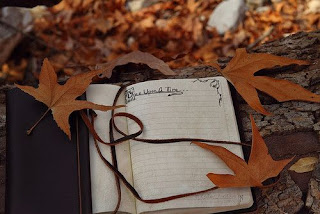 Once Upon A Time